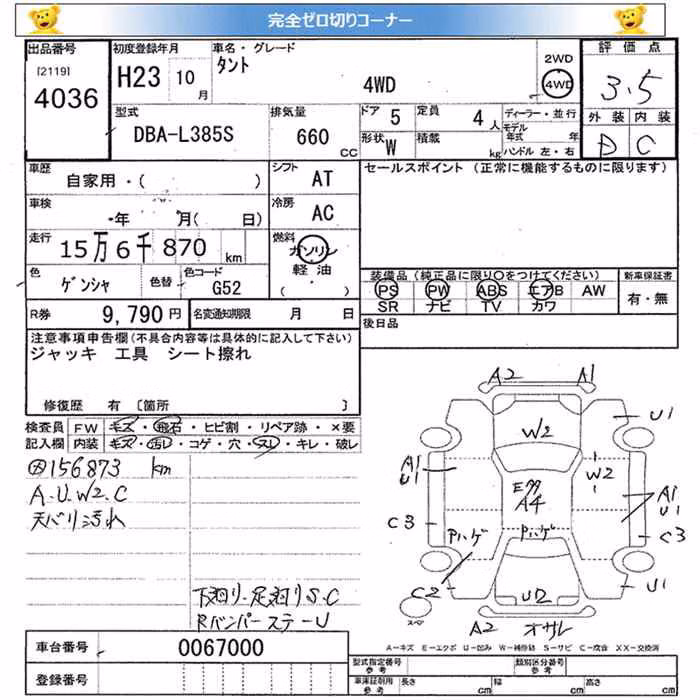 完全ゼロ切りコーナー
出品番号 初度登録年月 車名・グレード 評価点
[2119] 4036 H23 10月 タント 4WD 2WD 4WD 3.5
型式 排気量 ドア 5 定員 4人 ディーラー・並行 外装 内装
DBA-L385S 660 CC 形状 W 積載 kg モデル年式 年 ハンドル 左・右 D C
車歴 シフト セールスポイント (正常に機能するものに限ります)
自家用・( ) AT
車検 冷房
年 月( 日) AC
走行 15万6千870km 燃料 ガソリン 軽油 ・( )
色 ゲンシャ 色替 色コード G52
装備品(純正品に限り○をつけてください) 新車保証書
PS PW ABS エアB AW 有・無
SR ナビ TV カワ
R券 9,790円 名変通知期限 月 日
後日品
注意事項申告欄(不具合内容等は具体的に記入して下さい)
ジャッキ 工具 シート擦れ
修復歴 有 〔箇所 〕
検査員 FW キズ・飛石・ヒビ割・リペア跡・×要
記入欄 内装 キズ・汚レ・コゲ・穴・スレ・キレ・破レ
156873 km
A.U.W2.C
天バリ汚れ
下廻り・足廻りS.C
RバンパーステーU
A2 A1
U1
W2
A1 U1
W2
A1 U1
A4
C3
C3
Pハゲ
Pハゲ
C2
U2
U1
スペ
A2 オサレ
A-キズ E-エクボ U-凹み W-補修跡 S-サビ C-腐食 XX-交換済
車台番号 0067000
登録番号
型式指定番号 参考 類別区分番号 参考
車庫証明用 参考 長さ cm 幅 cm 高さ cm